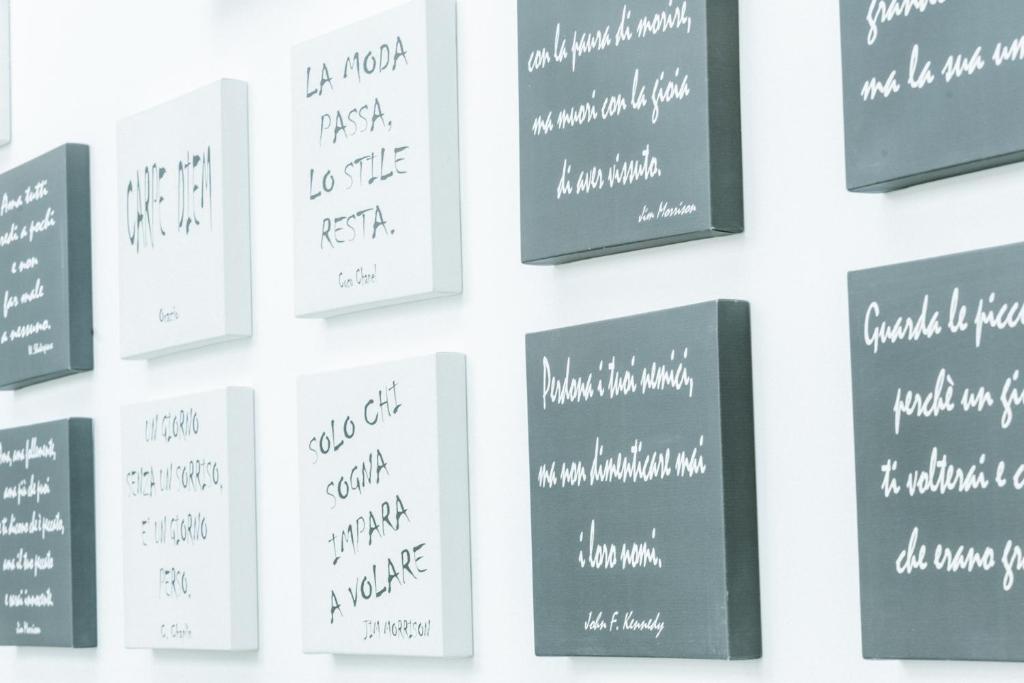 Ama tutti
credi a pochi
e non
far male
a nessuno.
CARPE DIEM
LA MODA
PASSA,
LO STILE
RESTA.
Coco Chanel
con la paura di morire,
ma muori con la gioia
di aver vissuto.
Jim Morrison
ma la sua
ama il tuo peccato
e sarai innocente.
Jim Morrison
UN GIORNO
SENZA UN SORRISO,
E' UN GIORNO
PERSO.
C. Chaplin
SOLO CHI
SOGNA
IMPARA
A VOLARE
JIM MORRISON
Perdona i tuoi nemici,
ma non dimenticare mai
i loro nomi.
John F. Kennedy
Guarda le
perchè un
ti volterai e
che erano